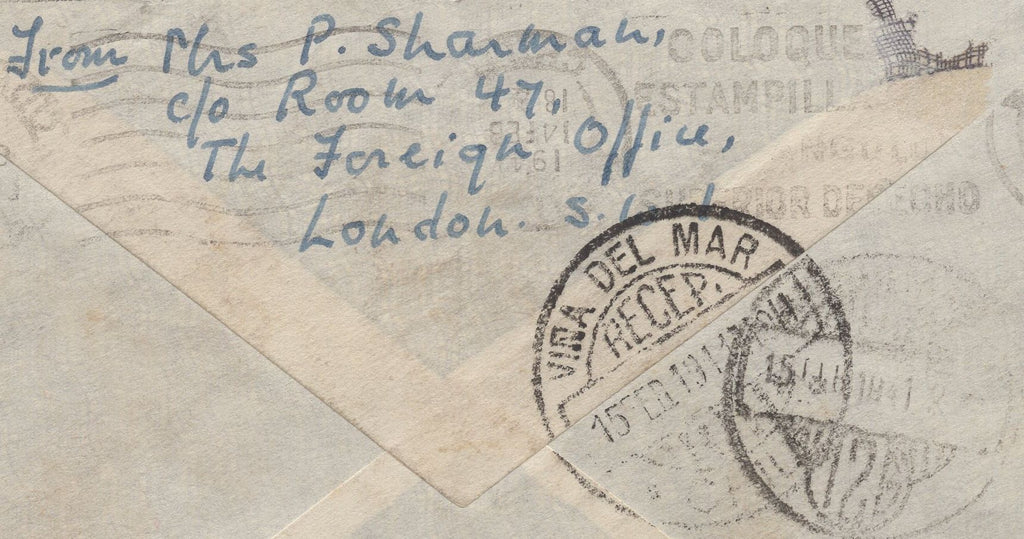 From Mrs P. Sharman,
c/o Room 47,
The Foreign Office,
London. S.W.1
COLOQUE
ESTAMPILLA
SUPERIOR DERECHO
VIÑA DEL MAR
RECEP.
15 FEB 1941
15 1941
12